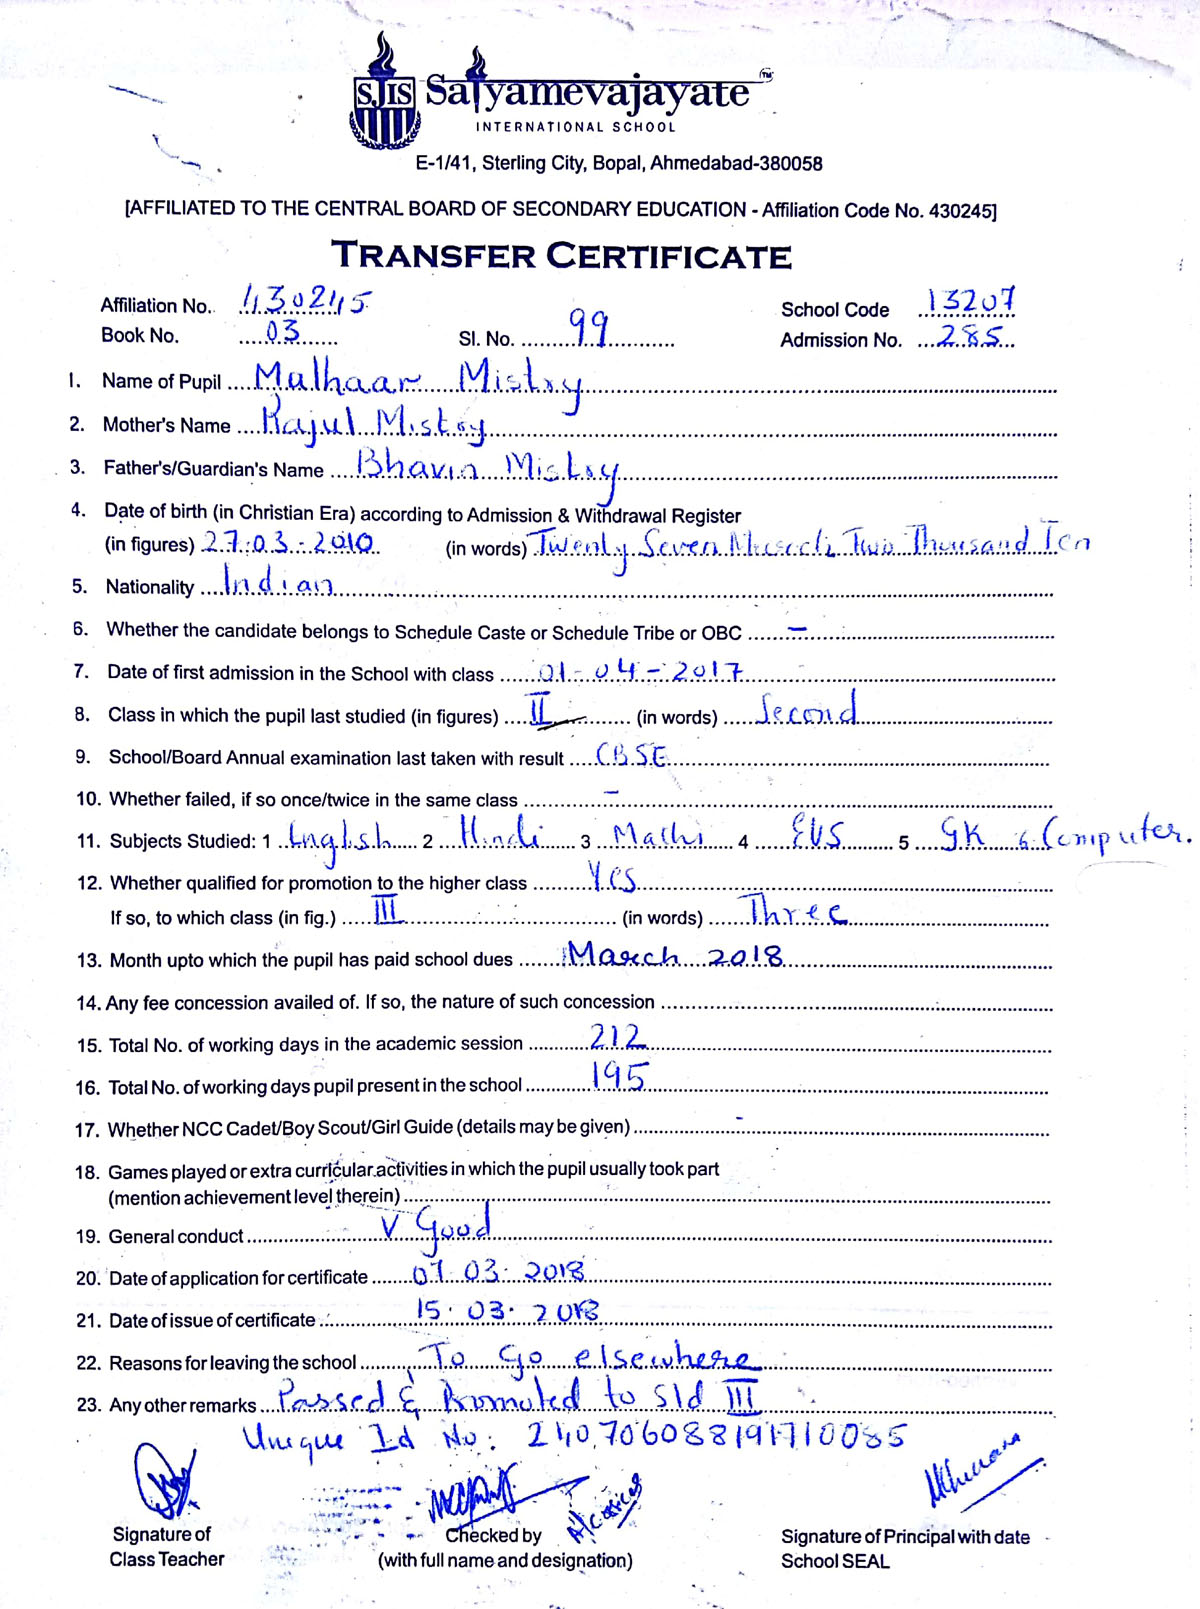 SJIS Satyamevajayate TM
INTERNATIONAL SCHOOL
E-1/41, Sterling City, Bopal, Ahmedabad-380058
[AFFILIATED TO THE CENTRAL BOARD OF SECONDARY EDUCATION - Affiliation Code No. 430245]
TRANSFER CERTIFICATE
Affiliation No. 430245 School Code 13207
Book No. 03 Sl. No. 99 Admission No. 285
1. Name of Pupil Malhaar Mistry
2. Mother's Name Rajul Mistry
3. Father's/Guardian's Name Bhavin Mistry
4. Date of birth (in Christian Era) according to Admission & Withdrawal Register
(in figures) 27.03.2010 (in words) Twenty Seven March Two Thousand Ten
5. Nationality Indian
6. Whether the candidate belongs to Schedule Caste or Schedule Tribe or OBC -
7. Date of first admission in the School with class 01-04-2017
8. Class in which the pupil last studied (in figures) II (in words) Second
9. School/Board Annual examination last taken with result CBSE
10. Whether failed, if so once/twice in the same class -
11. Subjects Studied: 1 English 2 Hindi 3 Maths 4 EVS 5 GK 6. Computer.
12. Whether qualified for promotion to the higher class Yes
If so, to which class (in fig.) III (in words) Three
13. Month upto which the pupil has paid school dues March 2018
14. Any fee concession availed of. If so, the nature of such concession
15. Total No. of working days in the academic session 212
16. Total No. of working days pupil present in the school 195
17. Whether NCC Cadet/Boy Scout/Girl Guide (details may be given) -
18. Games played or extra curricular activities in which the pupil usually took part
(mention achievement level therein)
19. General conduct V Good
20. Date of application for certificate 07.03.2018
21. Date of issue of certificate 15.03.2018
22. Reasons for leaving the school To Go elsewhere
23. Any other remarks Passed & Promoted to Std III
Unique Id No: 240706088191710085
Signature of Checked by Signature of Principal with date
Class Teacher (with full name and designation) School SEAL